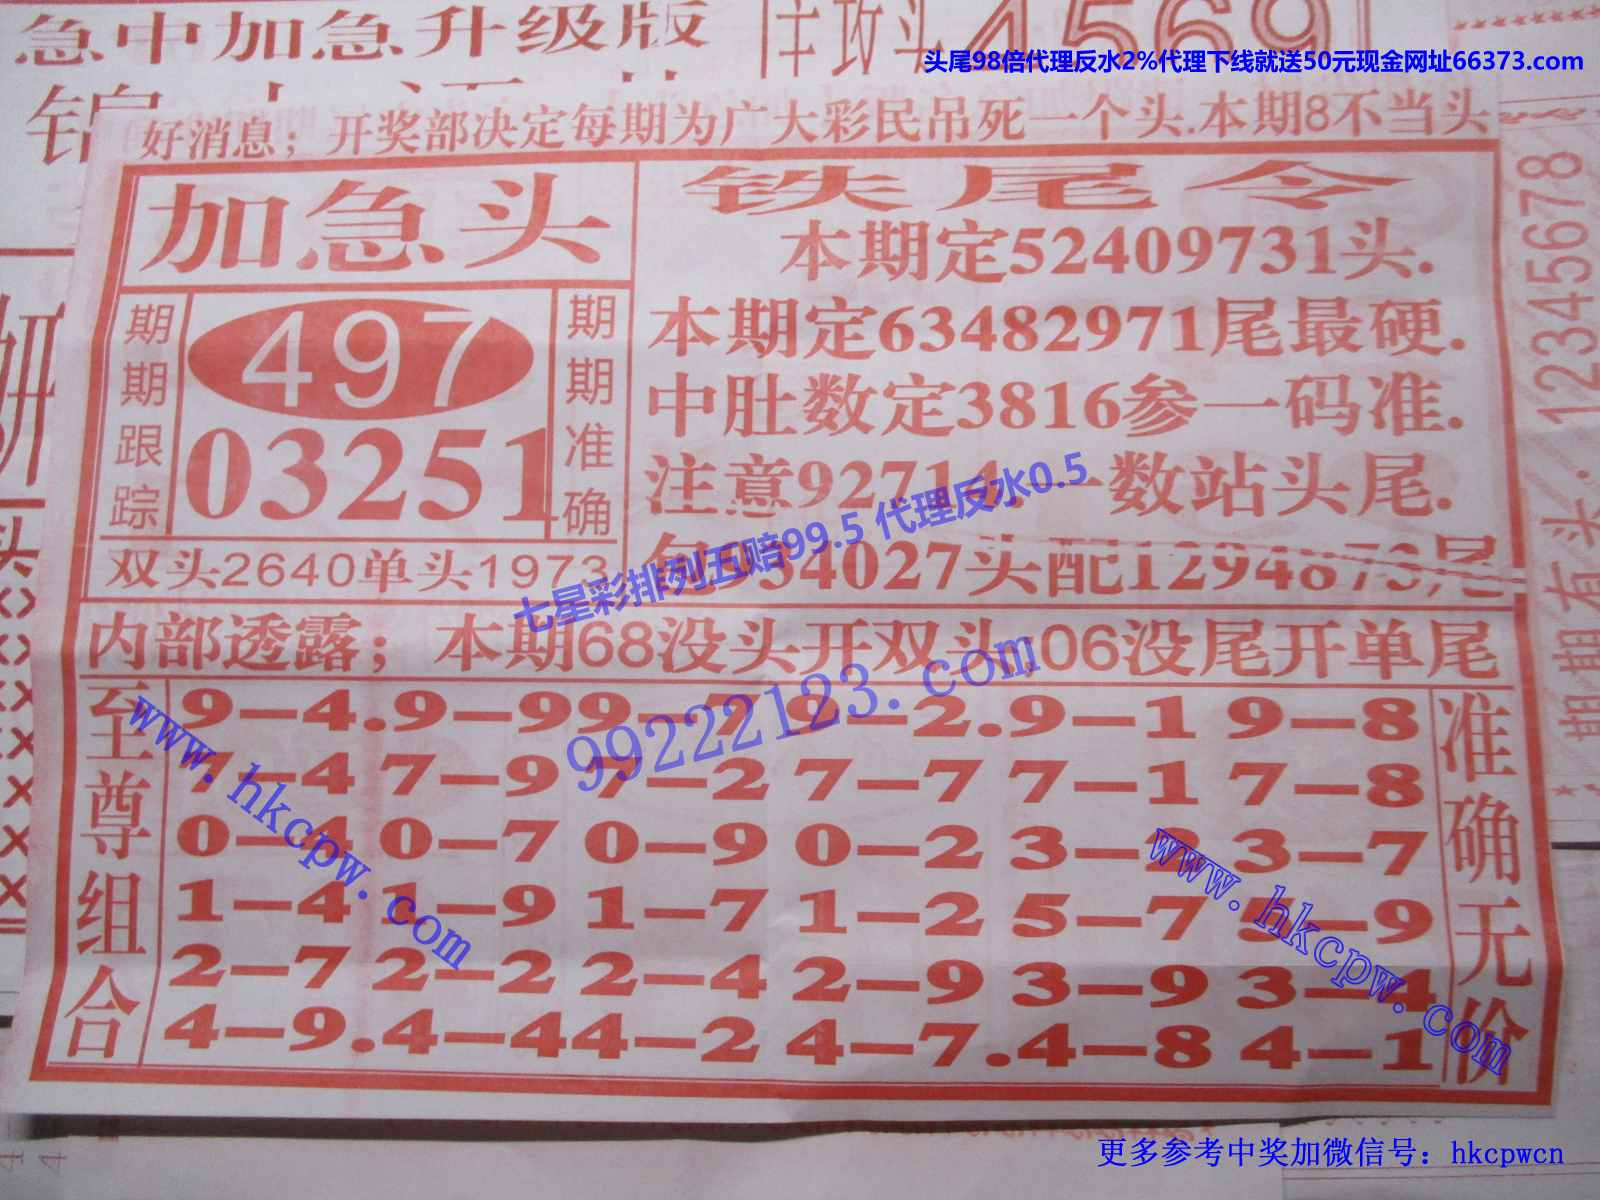 急中加急升级版
主攻头4569
头尾98倍代理反水2%代理下线就送50元现金网址66373.com
好消息；开奖部决定每期为广大彩民吊死一个头.本期8不当头
加急头
期期跟踪
497
03251
期期准确
双头2640单头1973
铁尾令
本期定52409731头.
本期定63482971尾最硬.
中肚数定3816参一码准.
注意92714一数站头尾.
34027头配1294873尾
七星彩排列五赔99.5 代理反水0.5
内部透露；本期68没头开双头.06没尾开单尾
99222123.com
至尊组合
9—4.9—99—7 9—2.9—1 9—8
7—4 7—9 7—2 7—7 7—1 7—8
0—4 0—7 0—9 0—2 3—2 3—7
1—4 1—9 1—7 1—2 5—7 5—9
2—7 2—2 2—4 2—9 3—9 3—4
4—9.4—44—2 4—7.4—8 4—1
准确无价
www.hkcpw.com
www.hkcpw.com
期期有头.12345678
更多参考中奖加微信号：hkcpwcn